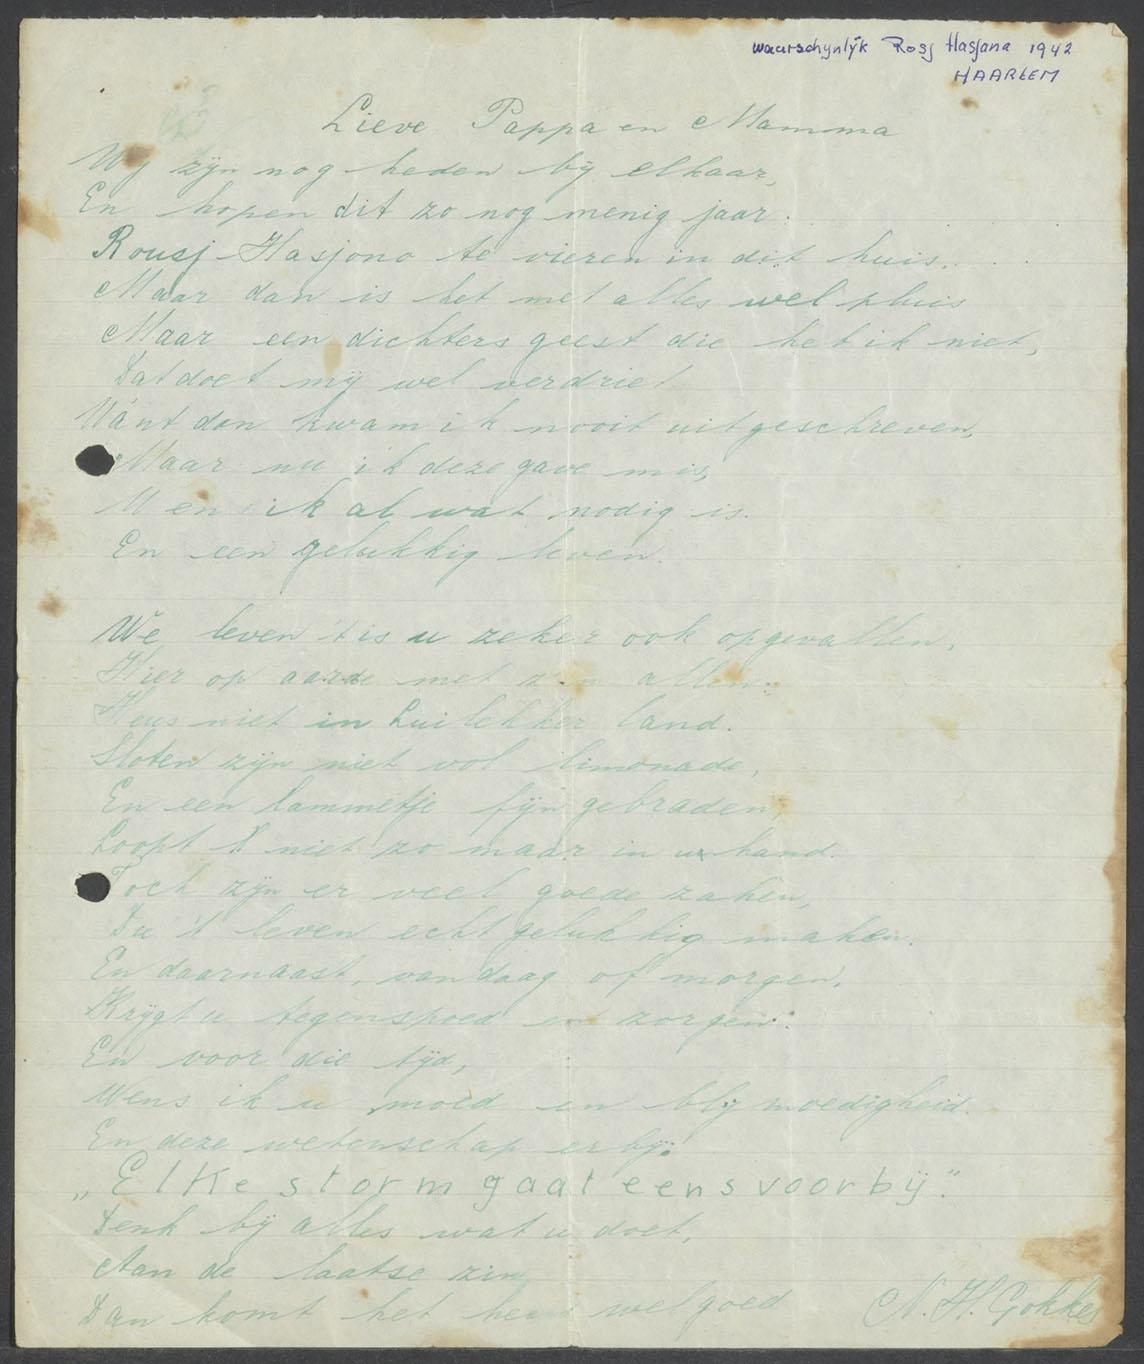 waarschynlÿk Rosj Hasjana 1942
HAARLEM
Lieve Pappa en Mamma
Wy zÿn nog heden bÿ elkaar,
En hopen dit zo nog menig jaar.
Rousj Hasjono te vieren in dit huis.
Maar dan is het met alles wel pluis
Maar een dichters geest die heb ik niet,
Dat doet mÿ wel verdriet
Want dan kwam ik nooit uitgeschreven,
Maar nu ik deze gave mis,
Wens ik al wat nodig is.
En een gelukkig leven.
We leven 't is u zeker ook opgevallen,
Hier op aarde met z'n allen.
Heus niet in Luilekker land.
Sloten zÿn niet vol limonade,
En een lammetje fÿn gebraden,
Loopt U niet zo maar in uw hand.
Toch zÿn er veel goede zaken,
Die 't leven echt gelukkig maken.
En daarnaast, vandaag of morgen,
Krÿgt u tegenspoed en zorgen.
En voor die tÿd,
Wens ik u moed en blÿmoedigheid.
En deze wetenschap erbÿ.
„Elke storm gaat eens voorbÿ."
Denk bÿ alles wat u doet,
Aan de laatse zin
Dan komt het heus wel goed
N. H. Gokkes